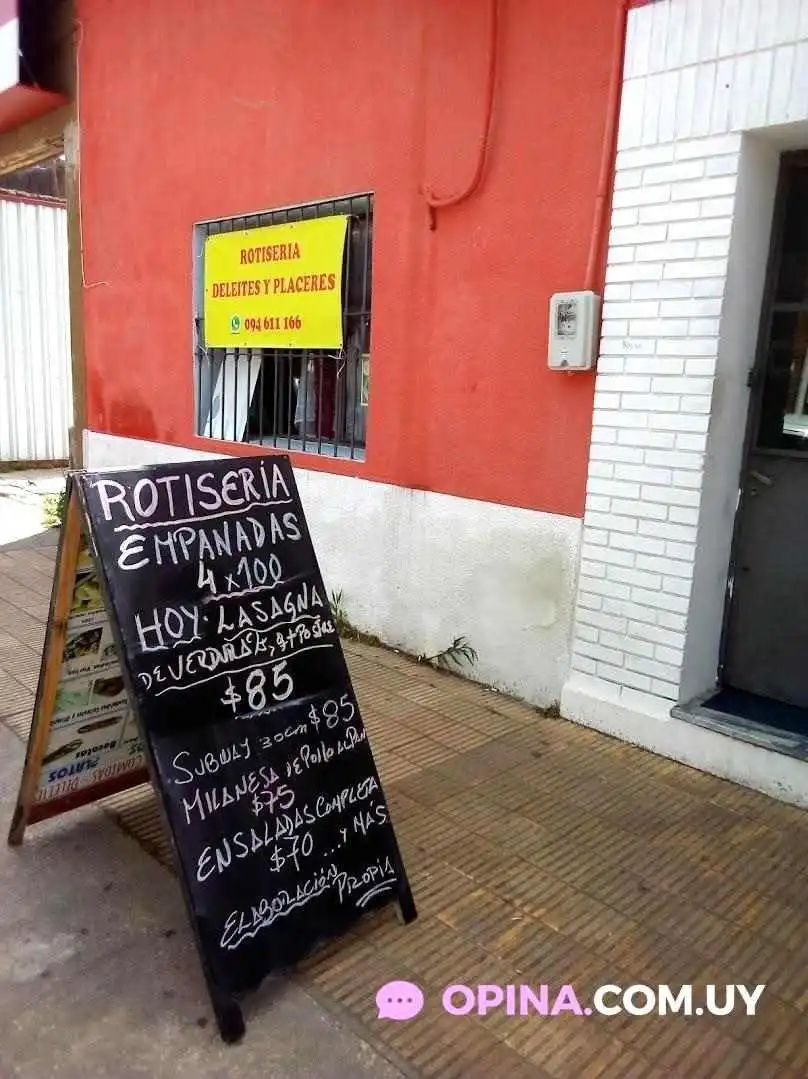 ROTISERIA
DELEITES Y PLACERES
094 611 166
ROTISERÍA
EMPANADAS
4 x 100
HOY. LASAGNA
DE VERDURAS, + POSTRE
$85
SUBWAY 30cm $85
MILANESA DE POLLO AL PAN
$75
ENSALADAS COMPLETA
$70 ... Y MÁS
ELABORACIÓN PROPIA
PLATOS
COMIDAS - DELEITE
OPINA.COM.UY